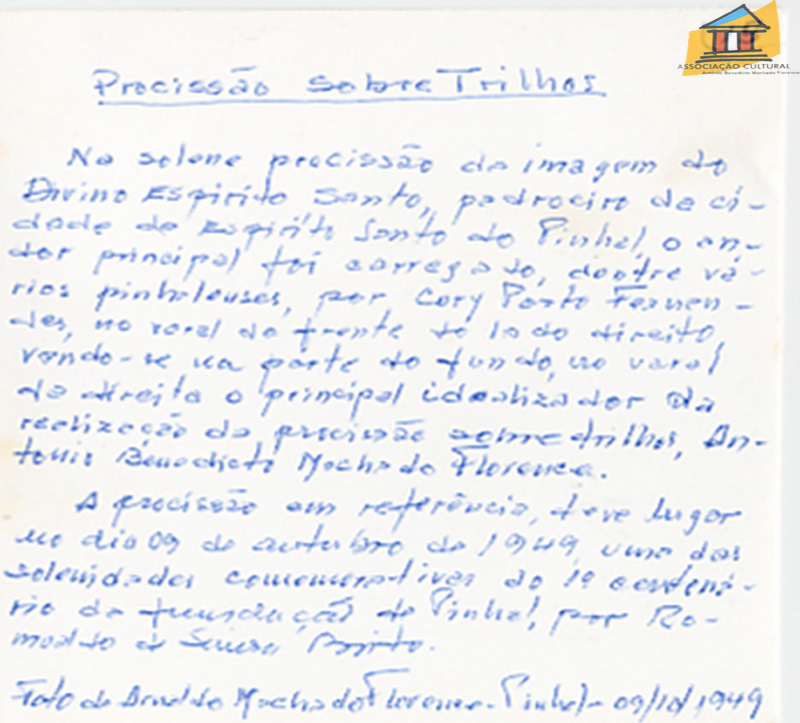 ASSOCIAÇÃO CULTURAL
Antonio Benedicto Machado Florence
Procissão sobre Trilhos
Na solene procissão da imagem do
Divino Espirito Santo, padroeiro da ci-
dade de Espirito Santo do Pinhal, o an-
dor principal foi carregado, dentre vá-
rios pinhalenses, por Cory Porto Fernan-
des, no varal da frente do lado direito,
vendo-se na parte do fundo, no varal
da direita o principal idealizador da
realização da procissão sobre trilhos, An-
tonio Benedicto Machado Florence.
A procissão em referência, teve lugar
no dia 09 de outubro de 1949, uma das
solenidades comemorativas do 1º centená-
rio da fundação de Pinhal, por Ro-
mualdo de Souza Brito.
Foto de Arnaldo Machado Florence - Pinhal - 09/10/1949